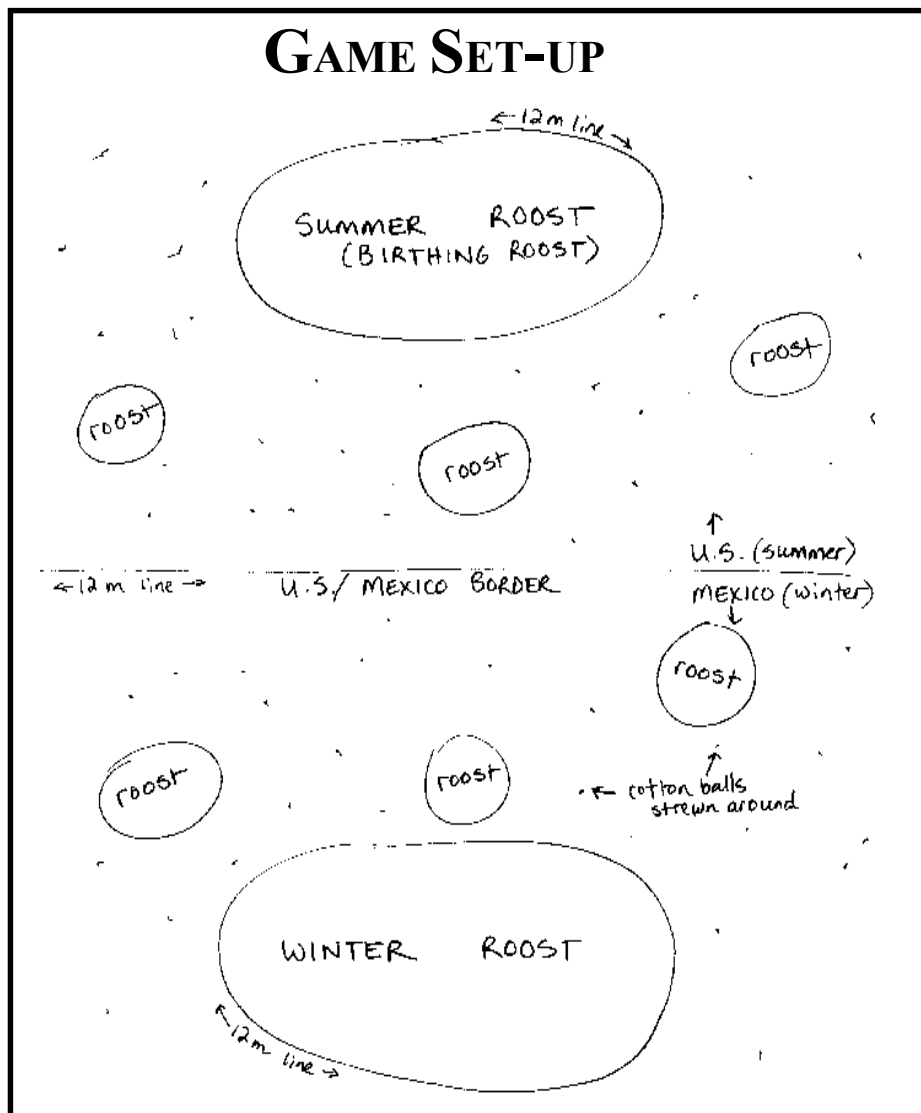 GAME SET-UP
←12m line→
SUMMER ROOST
(BIRTHING ROOST)
roost
roost
roost
↑
U.S. (summer)
←12 m line→
U.S./ MEXICO BORDER
MEXICO (winter)
↓
roost
roost
roost
↑
←cotton balls
strewn around
WINTER ROOST
←12m line→